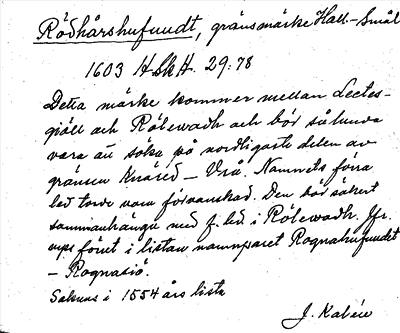 Rödhårshufuudt, gränsmärke Hall-Smål
1603 HSkH. 29:78
Detta märke kommer mellan Lectes-
giöll och Rölewadh och bör sålunda
vara att söka på nordligaste delen av
gränsen Knäred – Vrå. Namnets förra
led torde vara förvanskad. Den bör säkert
sammanhänga med f. led. i Rölewadh. Jfr.
föret i listan namnparet Rognahufuudet
– Rognasiö.
Saknas i 1554 års lista
J. Kalén